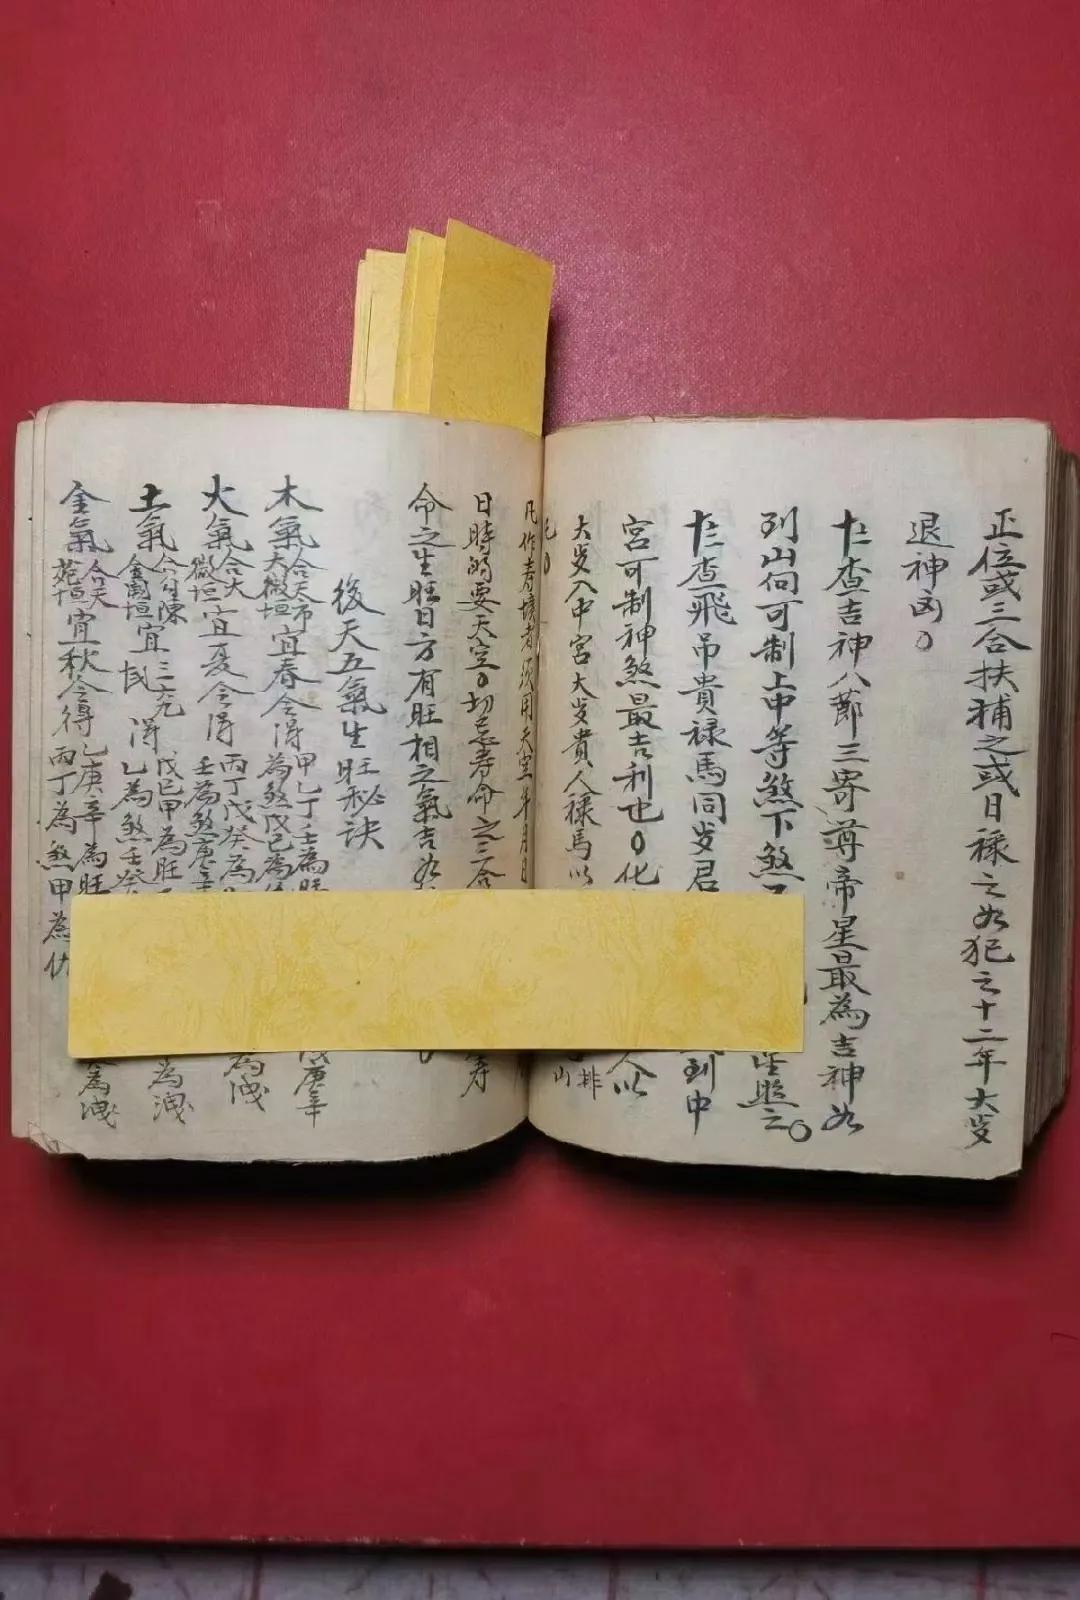 正位或三合扶補之或日祿之如犯之十二年大岁
退神凶〇
十二查吉神八節三奇尊帝星最為吉神如
到山向可制上中等煞下煞
星照之〇
十三查飛吊貴祿馬同岁君
到中
宮可制神煞最吉利也〇化
人以
大岁入中宮大岁貴人祿馬以
排山
凡作寿坟者须用天空年月日
日時的要天空〇切忌寿命之三合
寿
命之生旺日方有旺相之氣吉
後天五氣生旺秘訣
木氣合天市大微垣宜春令得甲乙丁壬為旺
為煞戊己為
庚辛
火氣合大微垣宜夏令得丙丁戊癸為
壬為煞庚辛
為洩
土氣合勾陳金闕垣宜三六九
得戊己甲為旺
乙為煞壬癸
為洩
金氣合天苑垣宜秋令得乙庚辛為旺
丙丁為煞甲為仇
為洩